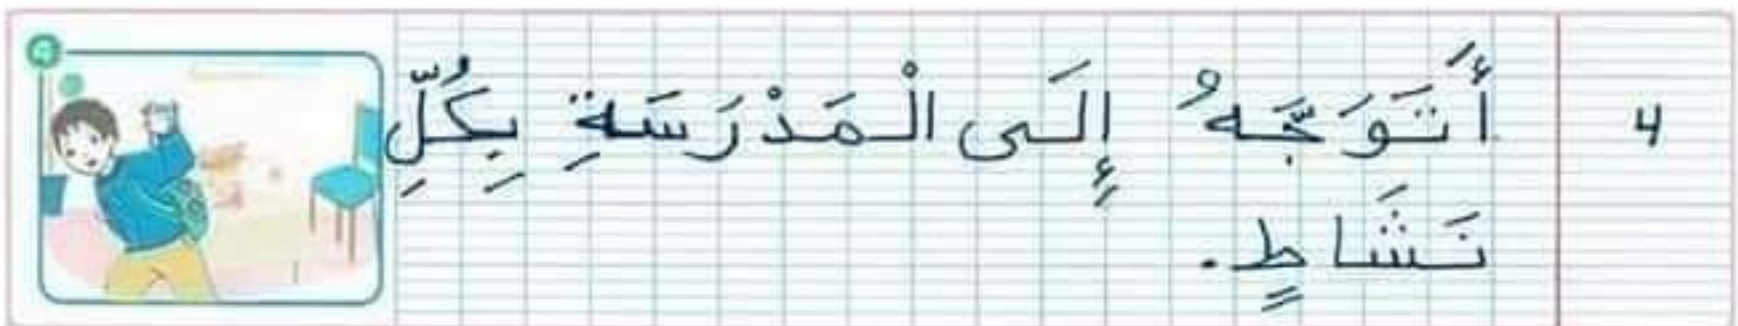 4 أَتَوَجَّهُ إِلَى الْمَدْرَسَةِ بِكُلِّ
نَشَاطٍ.